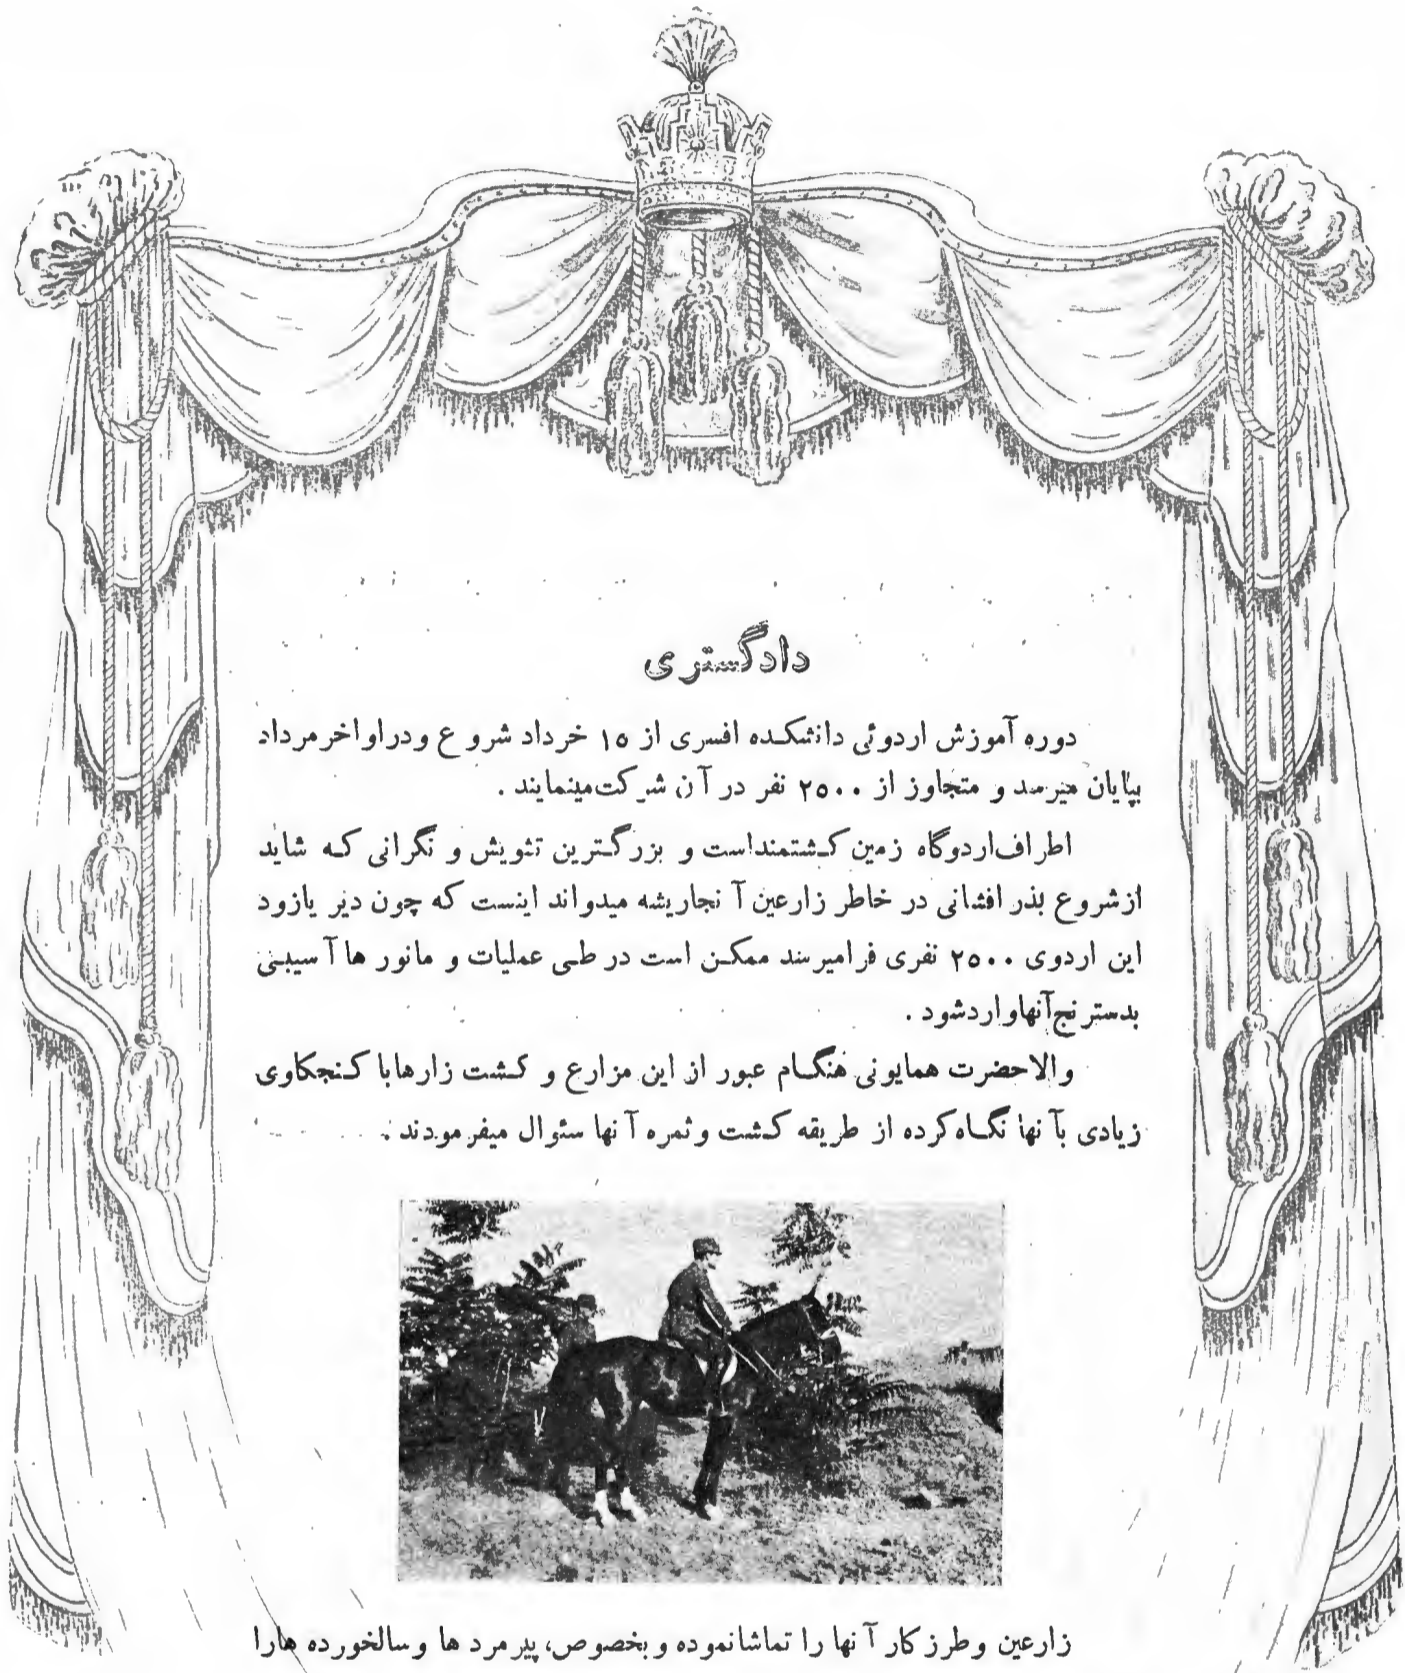 دادگستری
دوره آموزش اردوئی دانشکده افسری از ۱۵ خرداد شروع ودراواخرمرداد
بپایان میرسد و متجاوز از ۲۵۰۰ نفر در آن شرکت‌مینمایند .
اطراف‌اردوگاه زمین کشتمنداست و بزرگترین تشویش و نگرانی که شاید
ازشروع بذر افشانی در خاطر زارعین آنجاریشه میدواند اینست که چون دیر یازود
این اردوی ۲۵۰۰ نفری فرامیرسد ممکن است در طی عملیات و مانور ها آسیبی
بدسترنج‌آنهاواردشود .
والاحضرت همایونی هنگام عبور از این مزارع و کشت زارهابا کنجکاوی
زیادی بآنها نگاه‌کرده از طریقه کشت وثمره آنها سئوال میفرمودند .
زارعین وطرزکار آنها را تماشانموده وبخصوص، پیرمرد ها وسالخورده هارا